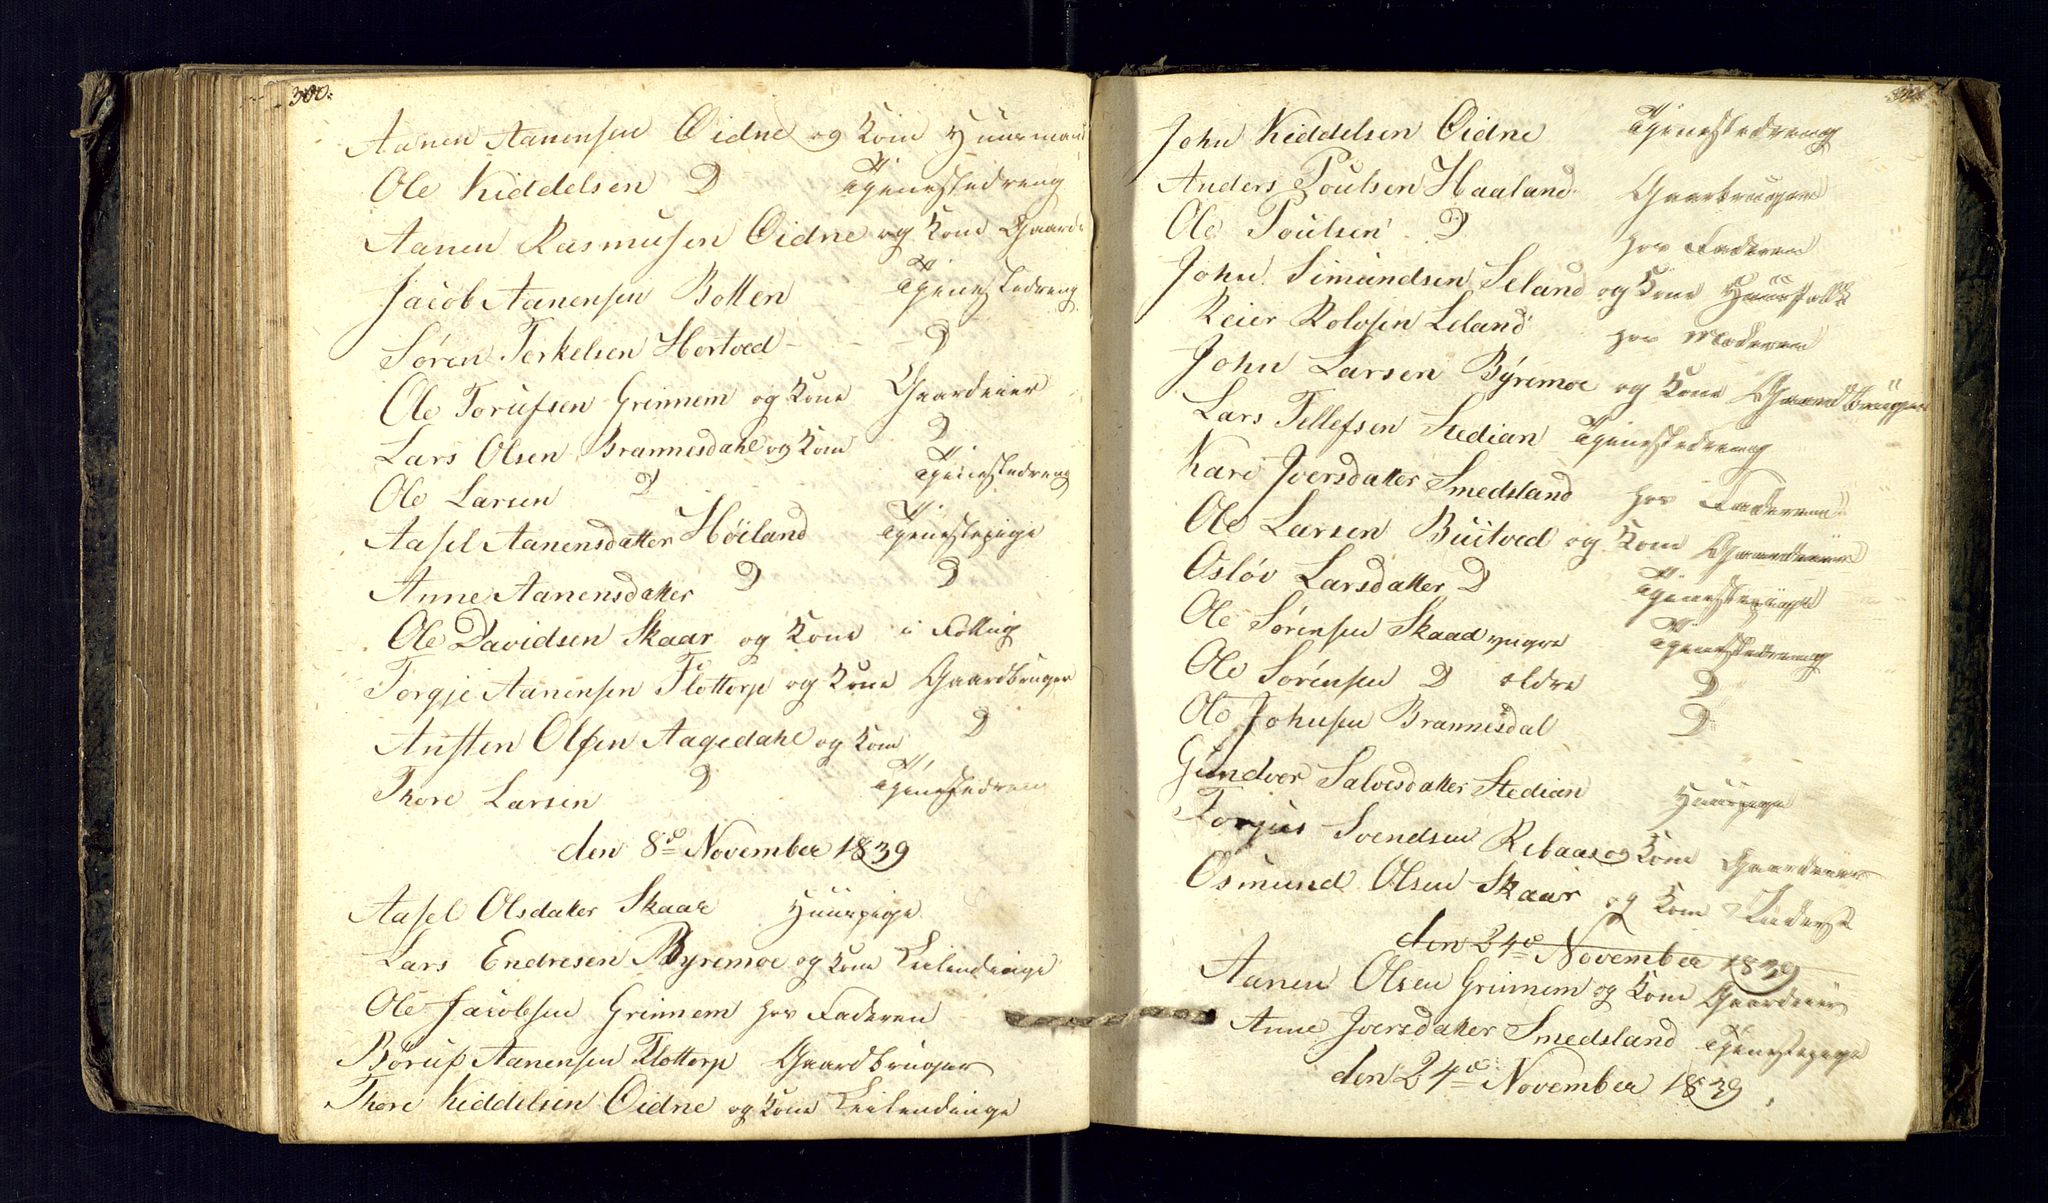 300.
Aanen Aanensen Oidne og Kone Huusmand
Ole Kiddelsen D Tjenestedreng
Aanen Rasmusen Oidne og Kone Gaard-
Jacob Aanensen Botten Tjenestedreng
Søren Terkelsen Hortved - - - D
Ole Torufsen Grinnem og Kone Gaardeier
Lars Olsen Brannisdahl og Kone D
Ole Larsen D Tjenestedreng
Aasel Aanensdatter Høiland Tjenestepige
Anne Aanensdatter D D
Ole Davidsen Skaar og Kone i Follug
Torgje Aanensen Flottorp og Kone Gaardbruger
Austen Olsen Aagedahl og Kone D
Thore Larsen D Tjenestedreng
den 8de November 1839
Aasel Olsdatter Skaar Huuspige
Lars Endresen Byremoe og Kone Leilendinge
Ole Jacobsen Grinnem hos Faderen
Børuf Aanensen Flottorp Gaardbruger
Thore Kiddelsen Oidne og Kone Leilendinge
John Kiddelsen Oidne Tjenestedreng
Anders Poulsen Haaland Gaarbruger
Ole Poulsen D hos Faderen
John Simundsen Seland og Kone Huusfolk
Reier Rolvsen Leland hos Moderen
John Larsen Byremoe og Kone Gaardbruger
Lars Tellefsen Stedian Tjenestedreng
Kari Iversdatter Smedsland hos Faderen
Ole Larsen Buitved og Kone Gaardeier
Osløv Larsdatter D Tjenestepige
Ole Sørensen Skaad yngre Tjenestedreng
Ole Sørensen D ældre D
Ole Johnsen Brannisdal D
Gundvor Salvesdatter Stedian Huuspige
Torjus Svendsen Rebaas og Kone Gaardeier
Osmund Olsen Skaar og Kone Inderst
den 24de November 1839
Aanen Olsen Grinnem og Kone Gaardeier
Anne Iversdatter Smedsland Tjenestepige
den 24de November 1839